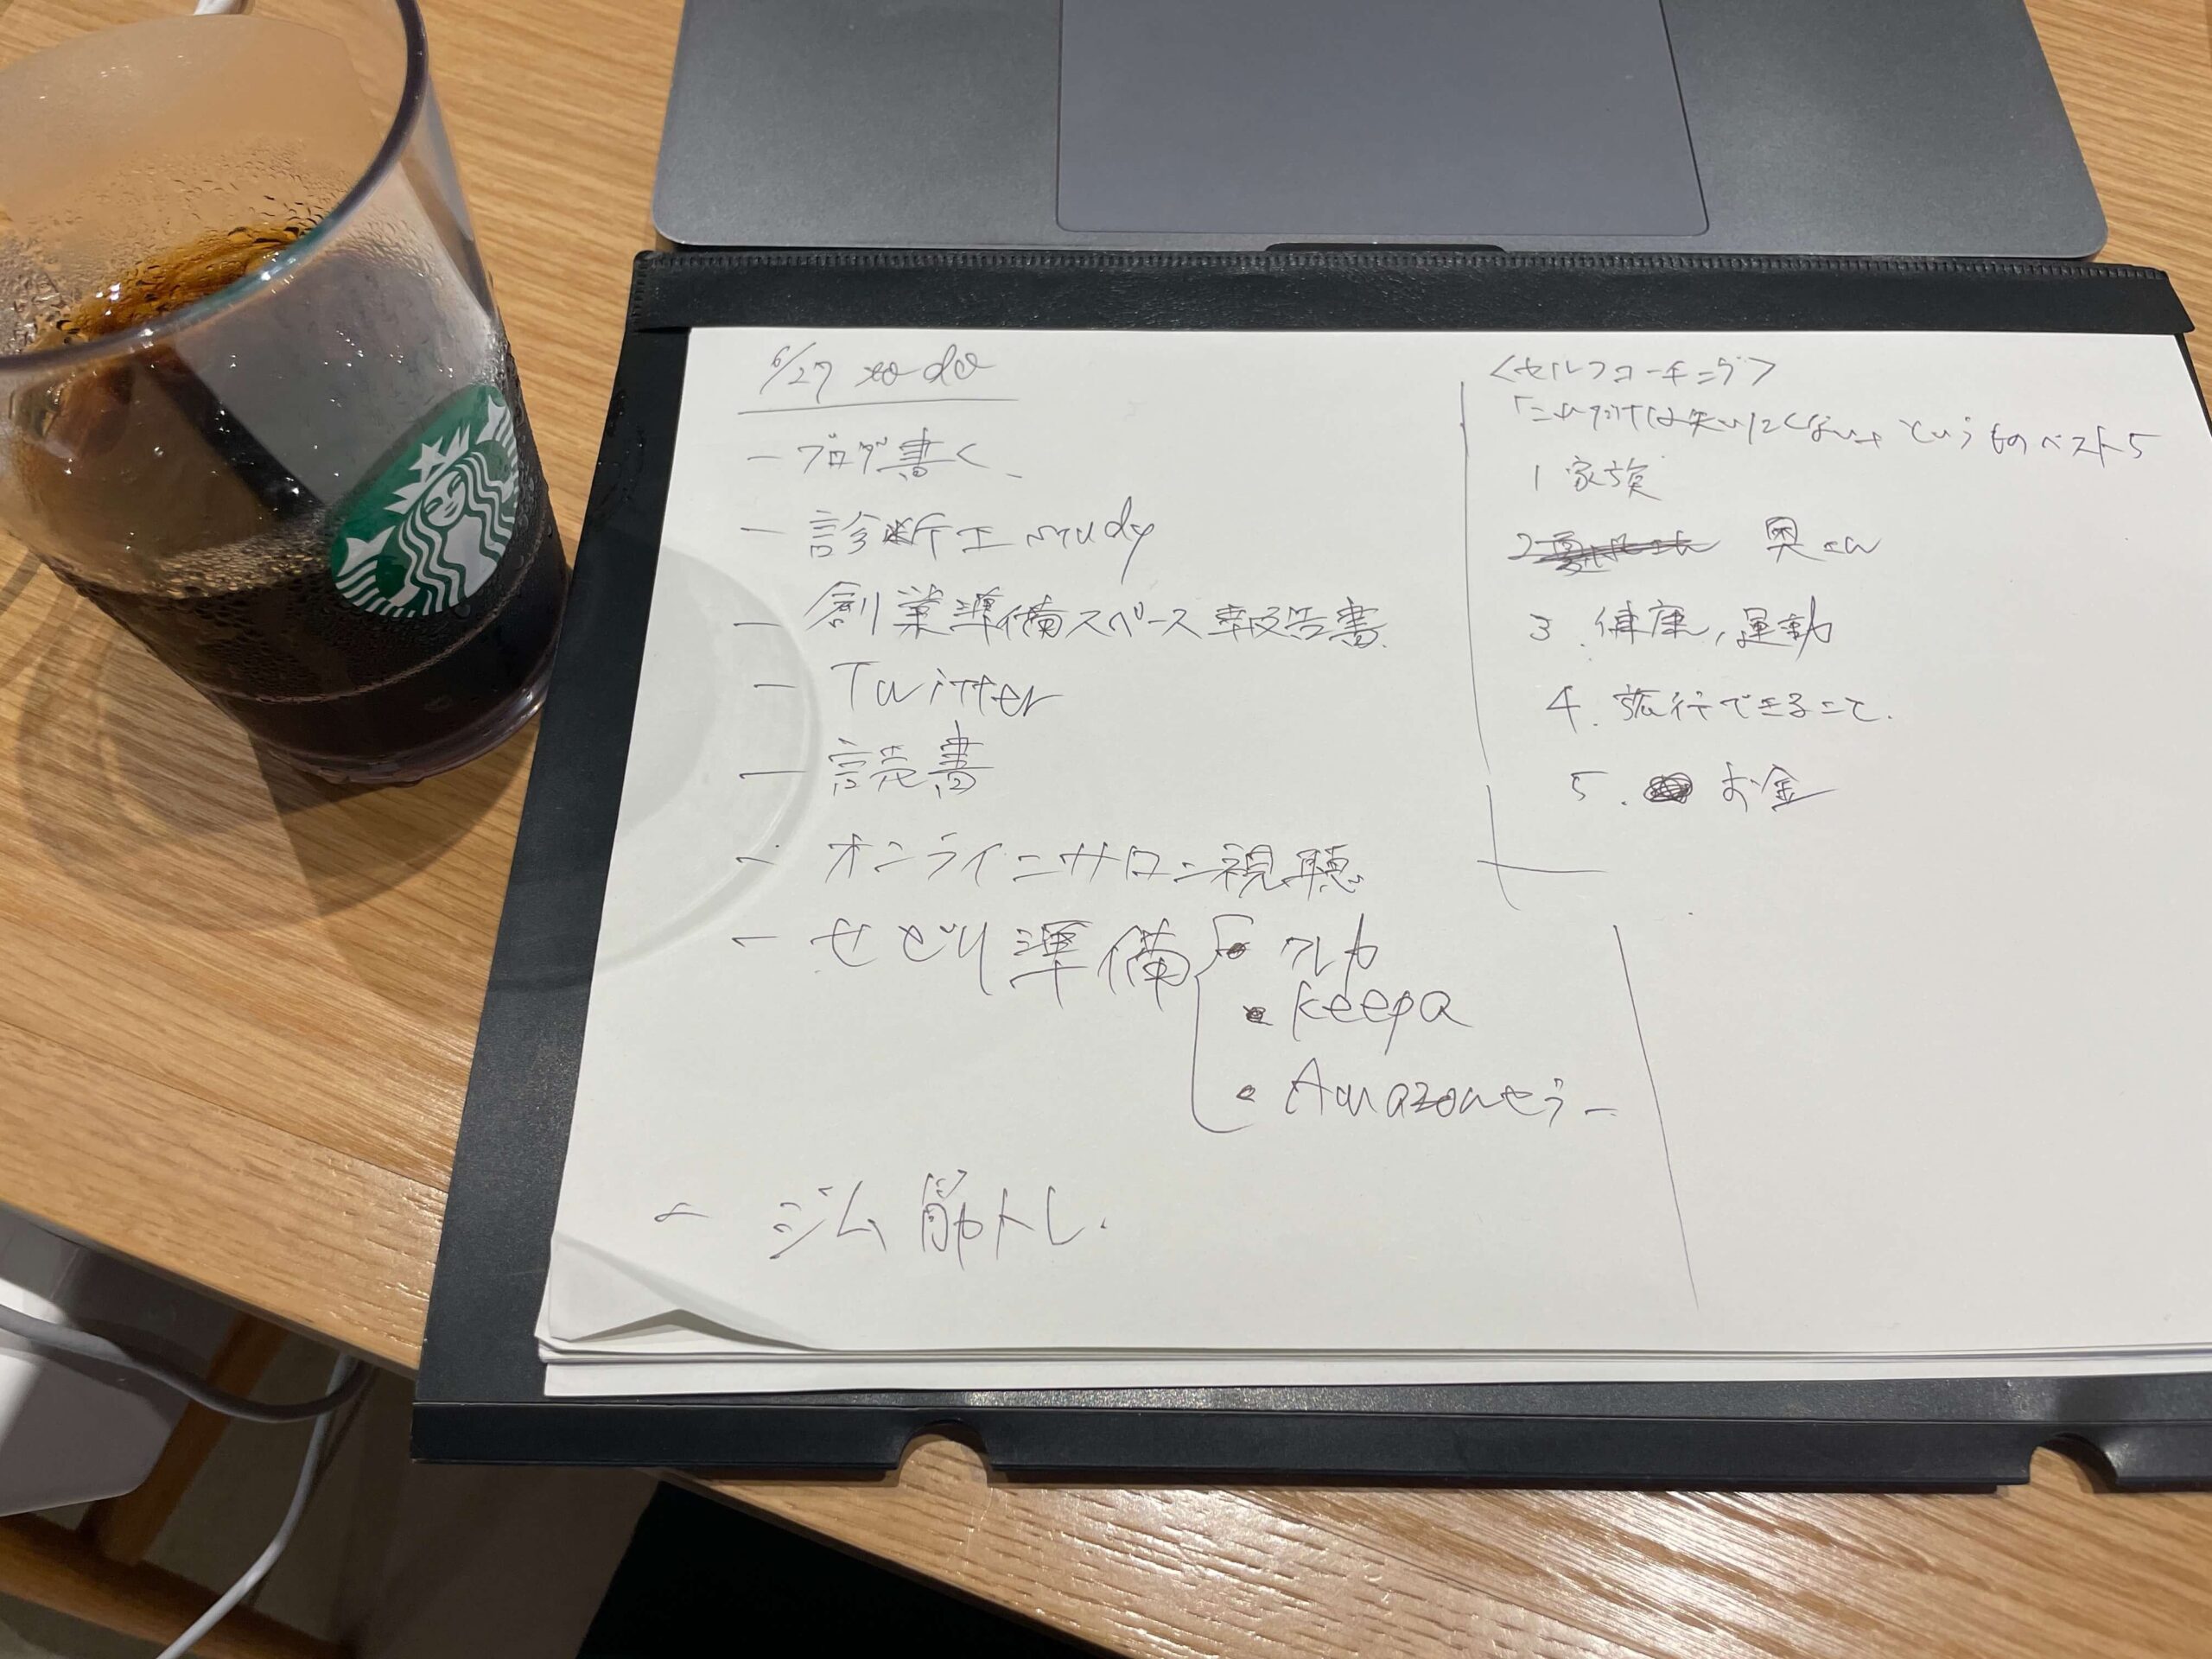 6/27 to do
- ブログ書く
- 診断士 study
- 創業準備スペース報告書
- Twitter
- 読書
- オンラインサロン視聴
- せどり準備
・クレカ
・keepa
・Amazonセラー
- ジム 筋トレ.
<セルフコーチング>
「これだけは失いたくない」というものベスト5
1 家族
2 奥さん
3. 健康, 運動
4. 旅行できること.
5. お金